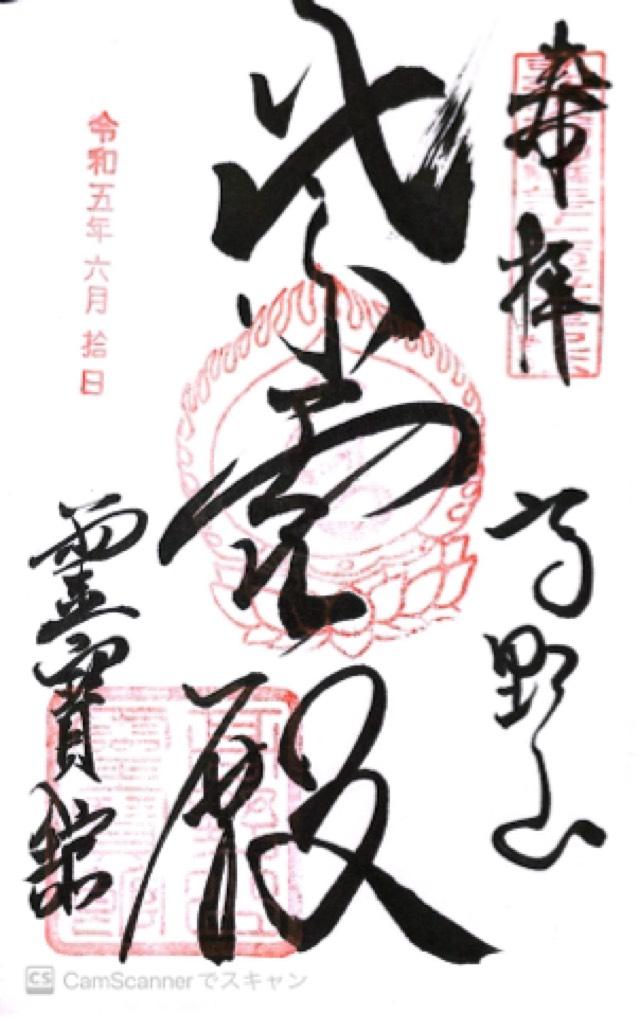 奉拝
高野山
紫雲殿
霊寳館
令和五年六月拾日
CS CamScannerでスキャン